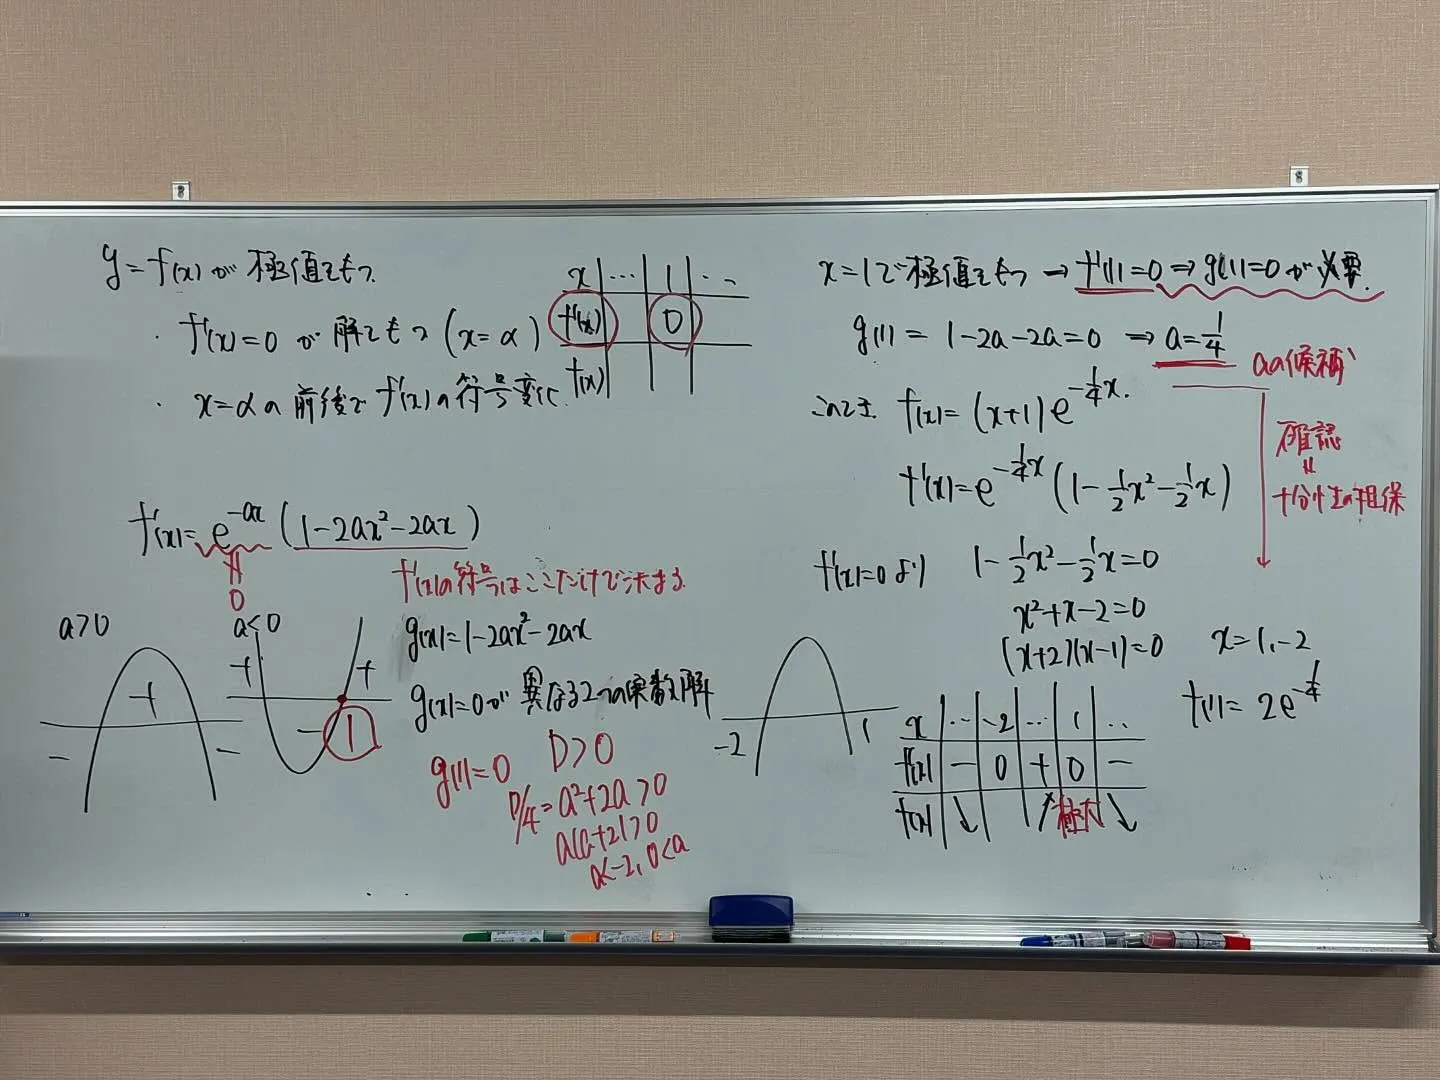 y=f(x)が極値をもつ
・f'(x)=0が解をもつ(x=α)
・x=αの前後でf'(x)の符号変化
x … 1 …
f'(x) 0
f(x)
f'(x)=e^{-ax}(1-2ax²-2ax)
0
f'(x)の符号はここだけで決まる
a>0
+
- -
a<0
+ +
- 1
g(x)=1-2ax²-2ax
g(x)=0が異なる2つの実数解
g(1)=0 D>0
D/4=a²+2a>0
a(a+2)>0
a<-2, 0<a
x=1で極値をもつ→f'(1)=0⇒g(1)=0が必要.
g(1)=1-2a-2a=0 ⇒ a=1/4
aの候補
このとき. f(x)=(x+1)e^{-1/4x}.
確認
=
十分性の担保
f'(x)=e^{-1/4x}(1-1/2x²-1/2x)
f'(x)=0より 1-1/2x²-1/2x=0
x²+x-2=0
(x+2)(x-1)=0 x=1,-2
f(1)=2e^{-1/4}
-2 1
x … -2 … 1 …
f'(x) - 0 + 0 -
f(x) ↘ ↗ 極大 ↘